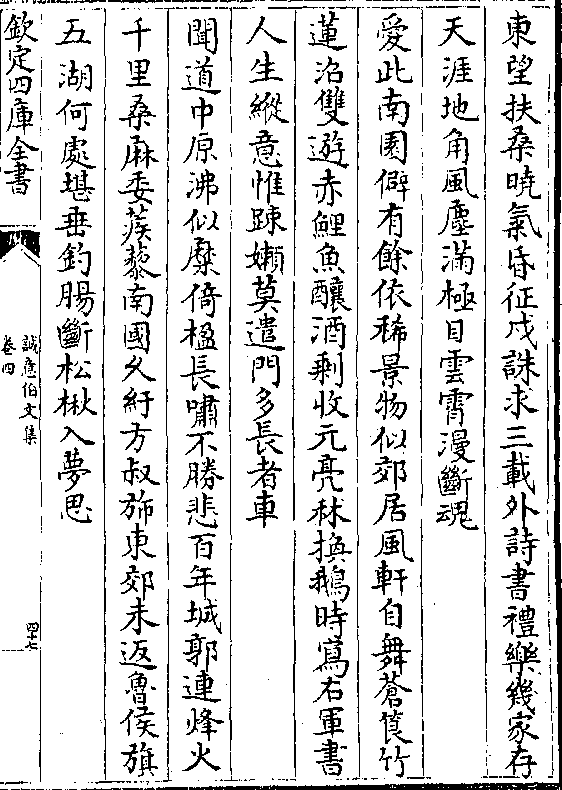 東望扶桑曉氣昏征戍誅求三載外詩書禮樂幾家存
天涯地角風塵滿極目雲霄漫斷魂
愛此南園僻有餘依稀景物似郊居風軒自舞蒼筤竹
蓮沼雙遊赤鯉魚釀酒剩收元亮秫換鵝時寫右軍書
人生縱意惟踈嬾莫遣門多長者車
聞道中原沸似糜倚楹長嘯不勝悲百年城郭連烽火
千里桑麻委蒺藜南國久紆方叔斾東郊未返魯侯旗
五湖何處堪垂釣腸斷松楸入夢思
欽定四庫全書
誠意伯文集
卷四
四十七